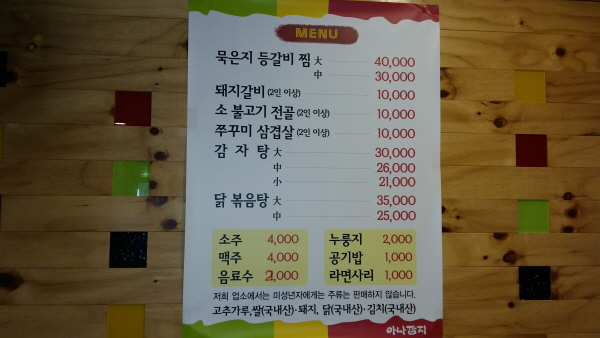 MENU
묵은지 등갈비 찜 大 40,000
中 30,000
돼지갈비 (2인 이상) 10,000
소 불고기 전골 (2인 이상) 10,000
쭈꾸미 삼겹살 (2인 이상) 10,000
감 자 탕 大 30,000
中 26,000
小 21,000
닭 볶음탕 大 35,000
中 25,000
소주 4,000
맥주 4,000
음료수 2,000
누룽지 2,000
공기밥 1,000
라면사리 1,000
저희 업소에서는 미성년자에게는 주류는 판매하지 않습니다.
고추가루,쌀(국내산)·돼지, 닭(국내산)·김치(국내산)